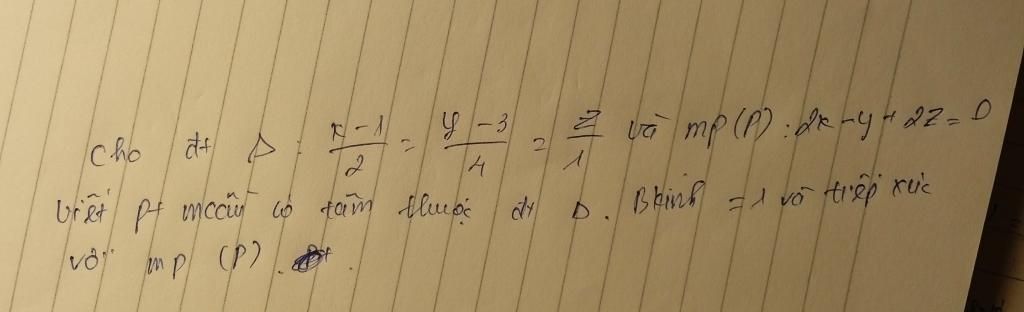 Cho đt Δ: x-1/2 = y-3/4 = z/1 và mp (P): 2x-y+2z=0
Viết pt mcầu có tâm thuộc đt Δ. Bkính =1 và tiếp xúc
với mp (P).